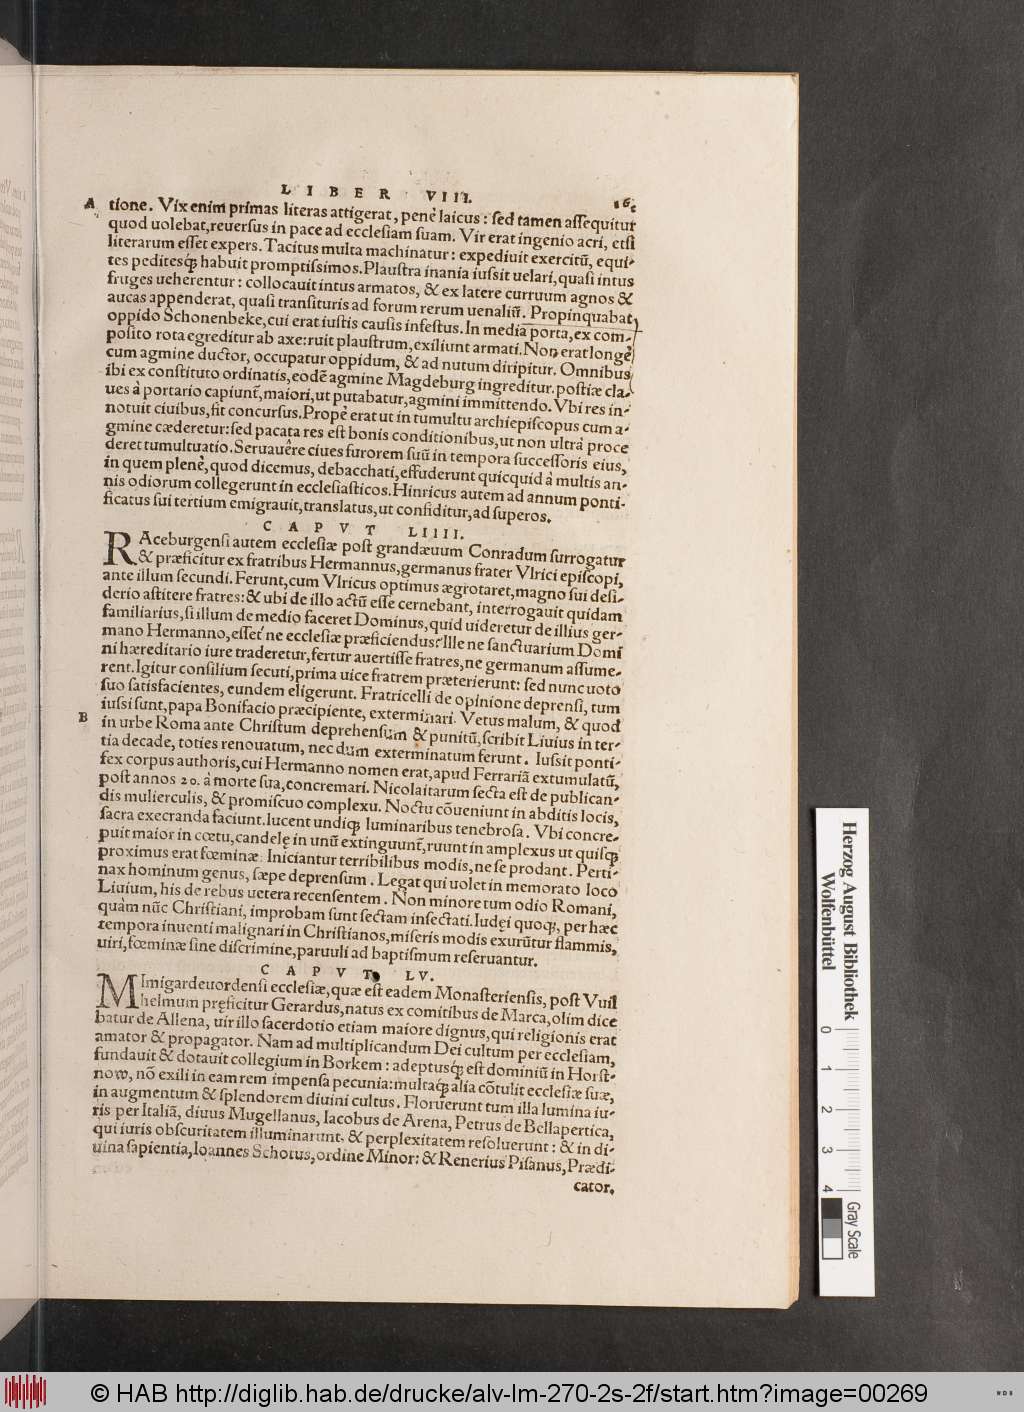 LIBER VIII.
A tione. Vix enim primas literas attigerat, penè laicus: sed tamen assequitur
quod uolebat, reuersus in pace ad ecclesiam suam. Vir erat ingenio acri, etsi
literarum esset expers. Tacitus multa machinatur: expediuit exercitũ, equi-
tes peditesq́; habuit promptissimos. Plaustra inania iussit uelari, quasi intus
fruges ueherentur: collocauit intus armatos, & ex latere curruum agnos &
aucas appenderat, quasi transituris ad forum rerum uenaliũ. Propinquabat
oppido Schonenbeke, cui erat iustis causis infestus. In media porta, ex com-
posito rota egreditur ab axe: ruit plaustrum, exiliunt armati. Non erat longè
cum agmine ductor, occupatur oppidum, & ad nutum diripitur. Omnibus
ibi ex constituto ordinatis, eodẽ agmine Magdeburg ingreditur. postiæ cla-
ues à portario capiunt̃, maiori, ut putabatur, agmini immittendo. Vbi res in-
notuit ciuibus, fit concursus. Propè erat ut in tumultu archiepiscopus cum a-
gmine cæderetur: sed pacata res est bonis conditionibus, ut non ultrà proce
deret tumultuatio. Seruauêre ciues furorem suũ in tempora successoris eius,
in quem plenè, quod dicemus, debacchati, effuderunt quicquid à multis an-
nis odiorum collegerunt in ecclesiasticos. Hinricus autem ad annum ponti-
ficatus sui tertium emigrauit, translatus, ut confiditur, ad superos.
CAPVT LIIII.
RAceburgensi autem ecclesiæ post grandæuum Conradum surrogatur
& præficitur ex fratribus Hermannus, germanus frater Vlrici episcopi,
ante illum secundi. Ferunt, cum Vlricus optimus ægrotaret, magno sui desi-
derio astitere fratres: & ubi de illo actũ esse cernebant, interrogauit quidam
familiarius, si illum de medio faceret Dominus, quid uideretur de illius ger-
mano Hermanno, esset ne ecclesiæ præficiendus? Ille ne sanctuarium Domi
ni hæreditario iure traderetur, fertur auertisse fratres, ne germanum assume-
rent. Igitur consilium secuti, prima uice fratrem præterierunt: sed nunc uoto
suo satisfacientes, eundem eligerunt. Fratricelli de opinione deprensi, tum
iussi sunt, papa Bonifacio præcipiente, exterminari. Vetus malum, & quod
B in urbe Roma ante Christum deprehensum & punitũ, scribit Liuius in ter-
tia decade, toties renouatum, nec dum exterminatum ferunt. Iussit ponti-
fex corpus authoris, cui Hermanno nomen erat, apud Ferrariã extumulatũ,
post annos 20. à morte sua, concremari. Nicolaitarum secta est de publican-
dis mulierculis, & promiscuo complexu. Noctu cõueniunt in abditis locis,
sacra execranda faciunt. lucent undiq́; luminaribus tenebrosa. Vbi concre-
puit maior in cœtu, candelę in unũ extinguunt̃, ruunt in amplexus ut quisq́;
proximus erat fœminæ. Iniciantur terribilibus modis, ne se prodant. Perti-
nax hominum genus, sæpe deprensum. Legat qui uolet in memorato loco
Liuium, his de rebus uetera recensentem. Non minore tum odio Romani,
quàm nũc Christiani, improbam sunt sectam insectati. Iudei quoq́;, per hæc
tempora inuenti malignari in Christianos, miseris modis exurũtur flammis,
uiri, fœminæ sine discrimine, paruuli ad baptismum reseruantur.
CAPVT LV.
MImigardeuordensi ecclesiæ, quæ est eadem Monasteriensis, post Vuil
helmum pręficitur Gerardus, natus ex comitibus de Marca, olim dice
batur de Allena, uir illo sacerdotio etiam maiore dignus, qui religionis erat
amator & propagator. Nam ad multiplicandum Dei cultum per ecclesiam,
fundauit & dotauit collegium in Borkem: adeptusq́; est dominiũ in Horst-
now, nõ exili in eam rem impensa pecunia: multaq́; alia cõtulit ecclesiæ suæ,
in augmentum & splendorem diuini cultus. Floruerunt tum illa lumina iu-
ris per Italiã, diuus Mugellanus, Iacobus de Arena, Petrus de Bellapertica,
qui iuris obscuritatem illuminarunt, & perplexitatem resoluerunt: & in di-
uina sapientia, Ioannes Schotus, ordine Minor: & Renerius Pisanus, Prædi-
cator.
Herzog August Bibliothek
Wolfenbüttel
0 1 2 3 4
Gray Scale
© HAB http://diglib.hab.de/drucke/alv-lm-270-2s-2f/start.htm?image=00269